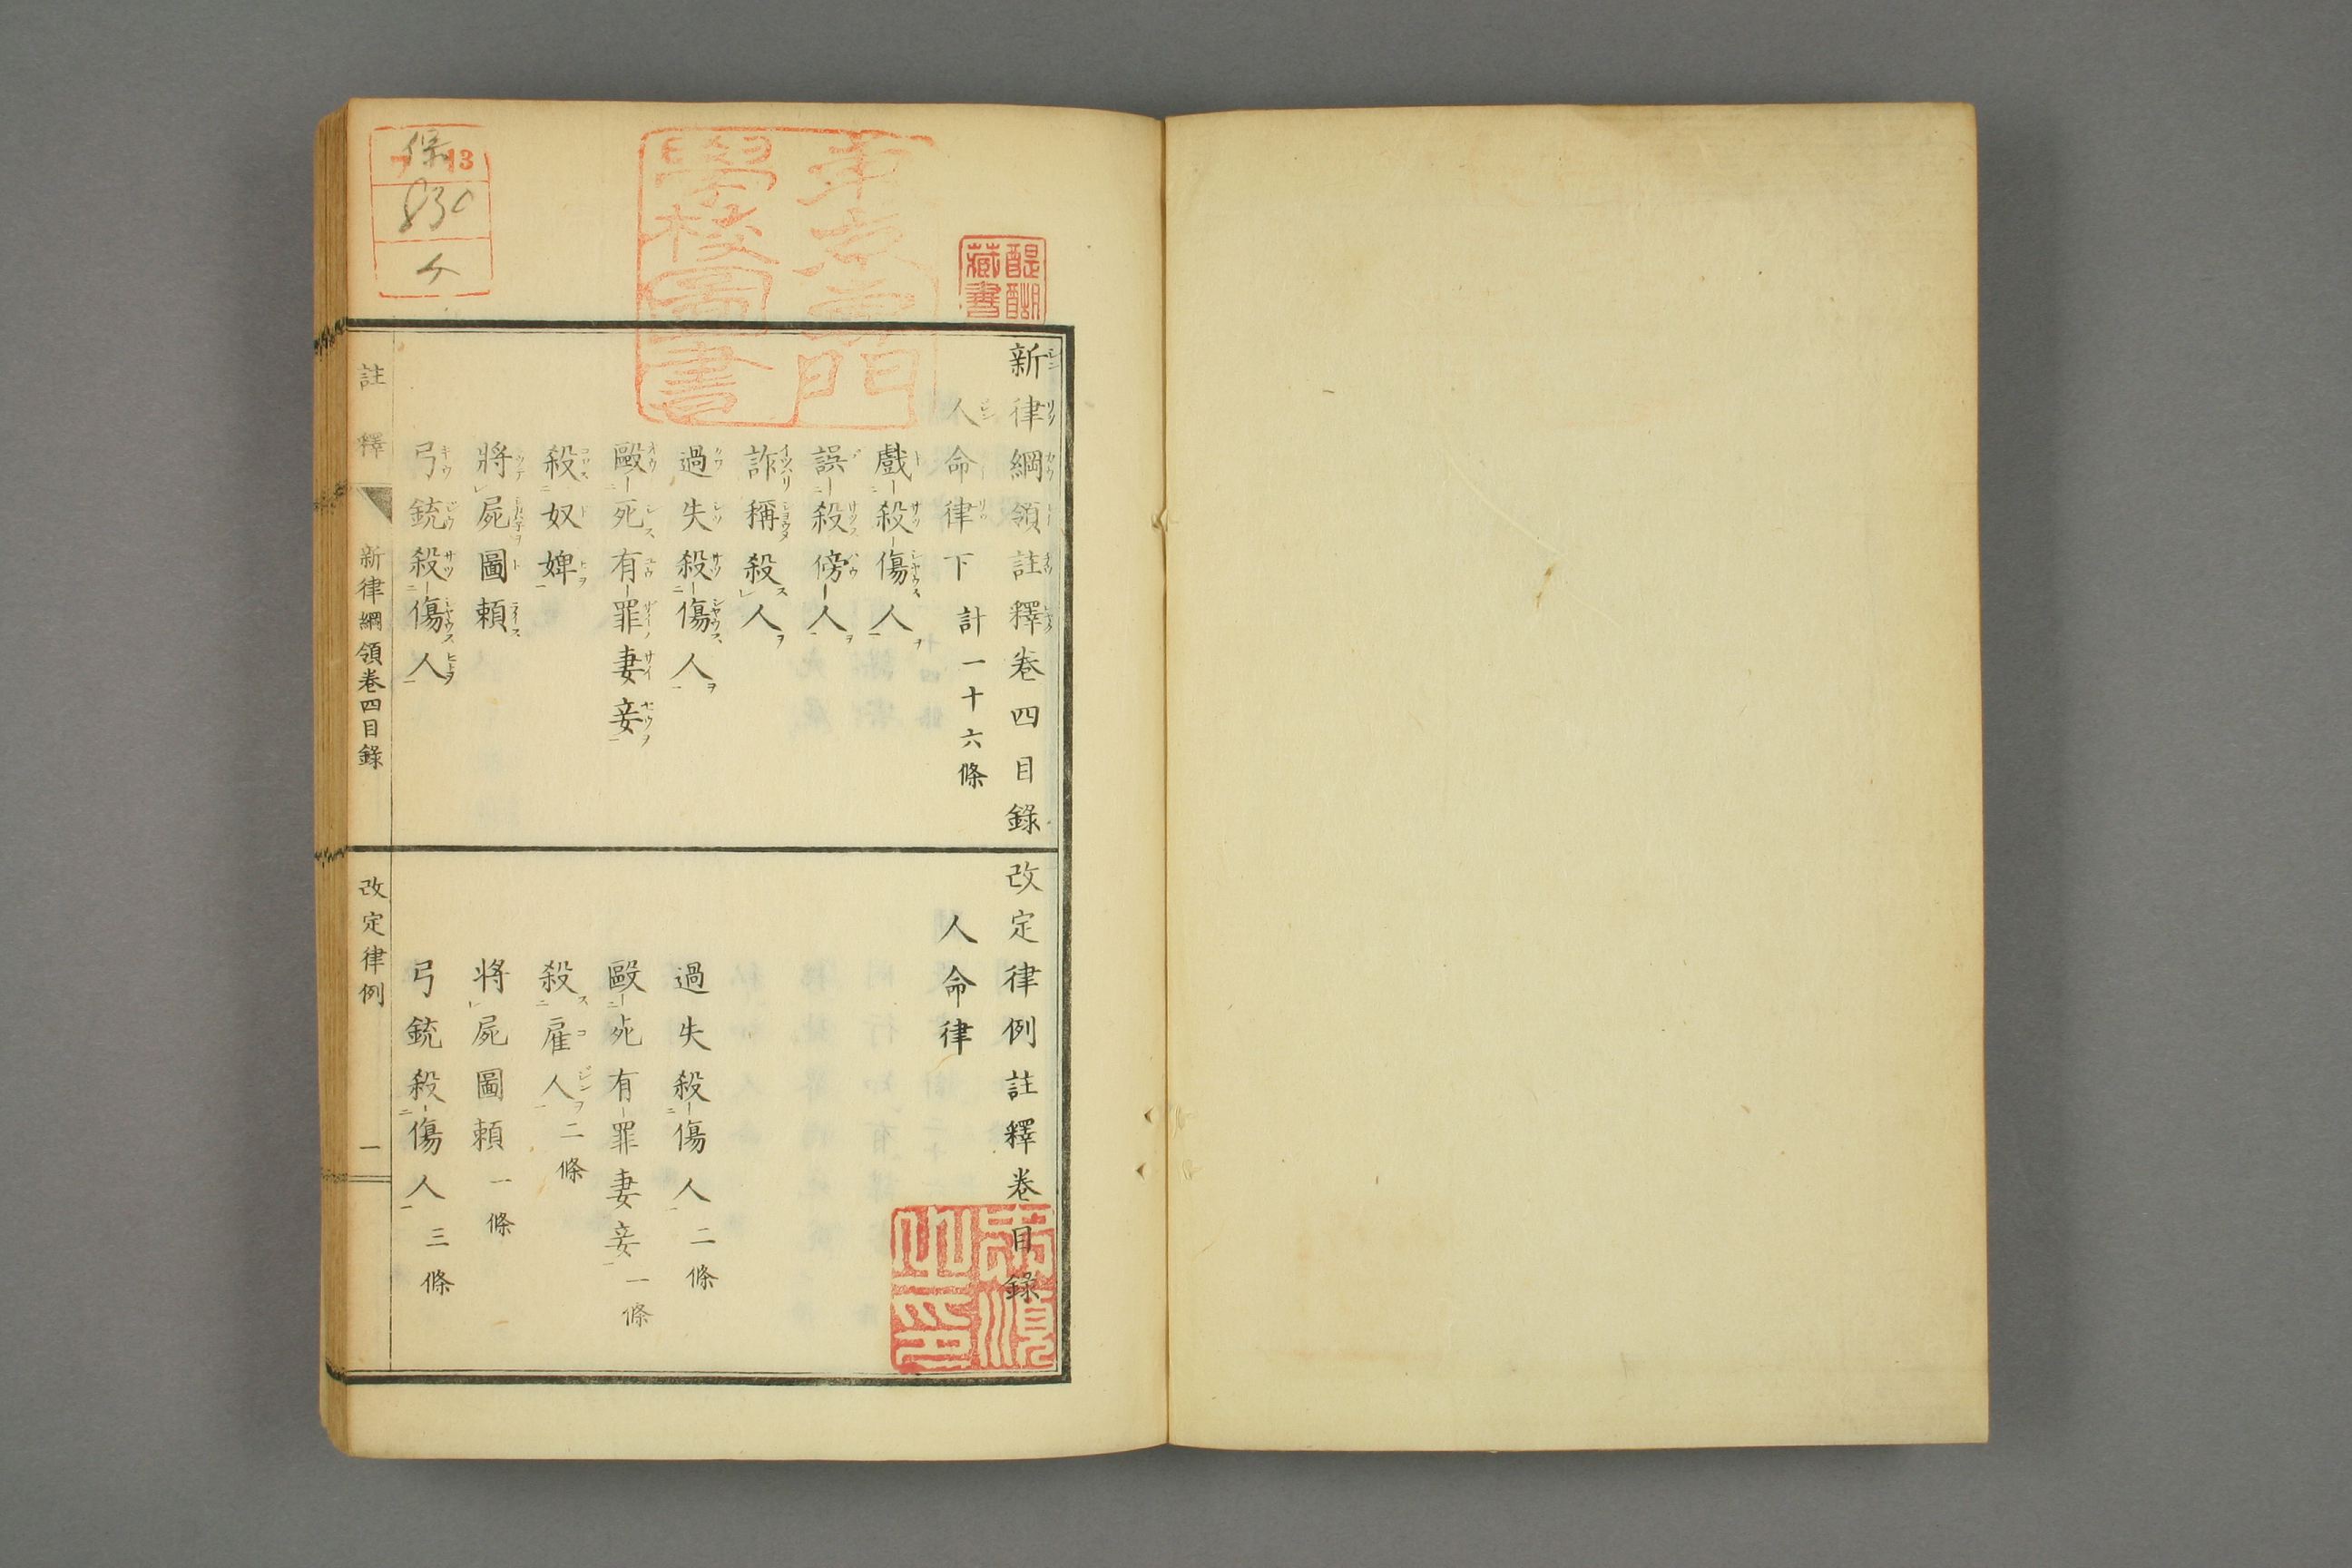 新律綱領註釋卷四目錄
人命律下 計一十六條
戲殺傷人
誤殺傍人
詐稱殺人
過失殺傷人
毆死有罪妻妾
殺奴婢
將屍圖頼
弓銃殺傷人
改定律例註釋卷目錄
人命律
過失殺傷人 二條
毆死有罪妻妾 一條
殺雇人 二條
將屍圖頼 一條
弓銃殺傷人 三條
註釋 新律綱領卷四目錄 改定律例 一
醍醐藏書
東京専門學校圖書
保 13
830
4